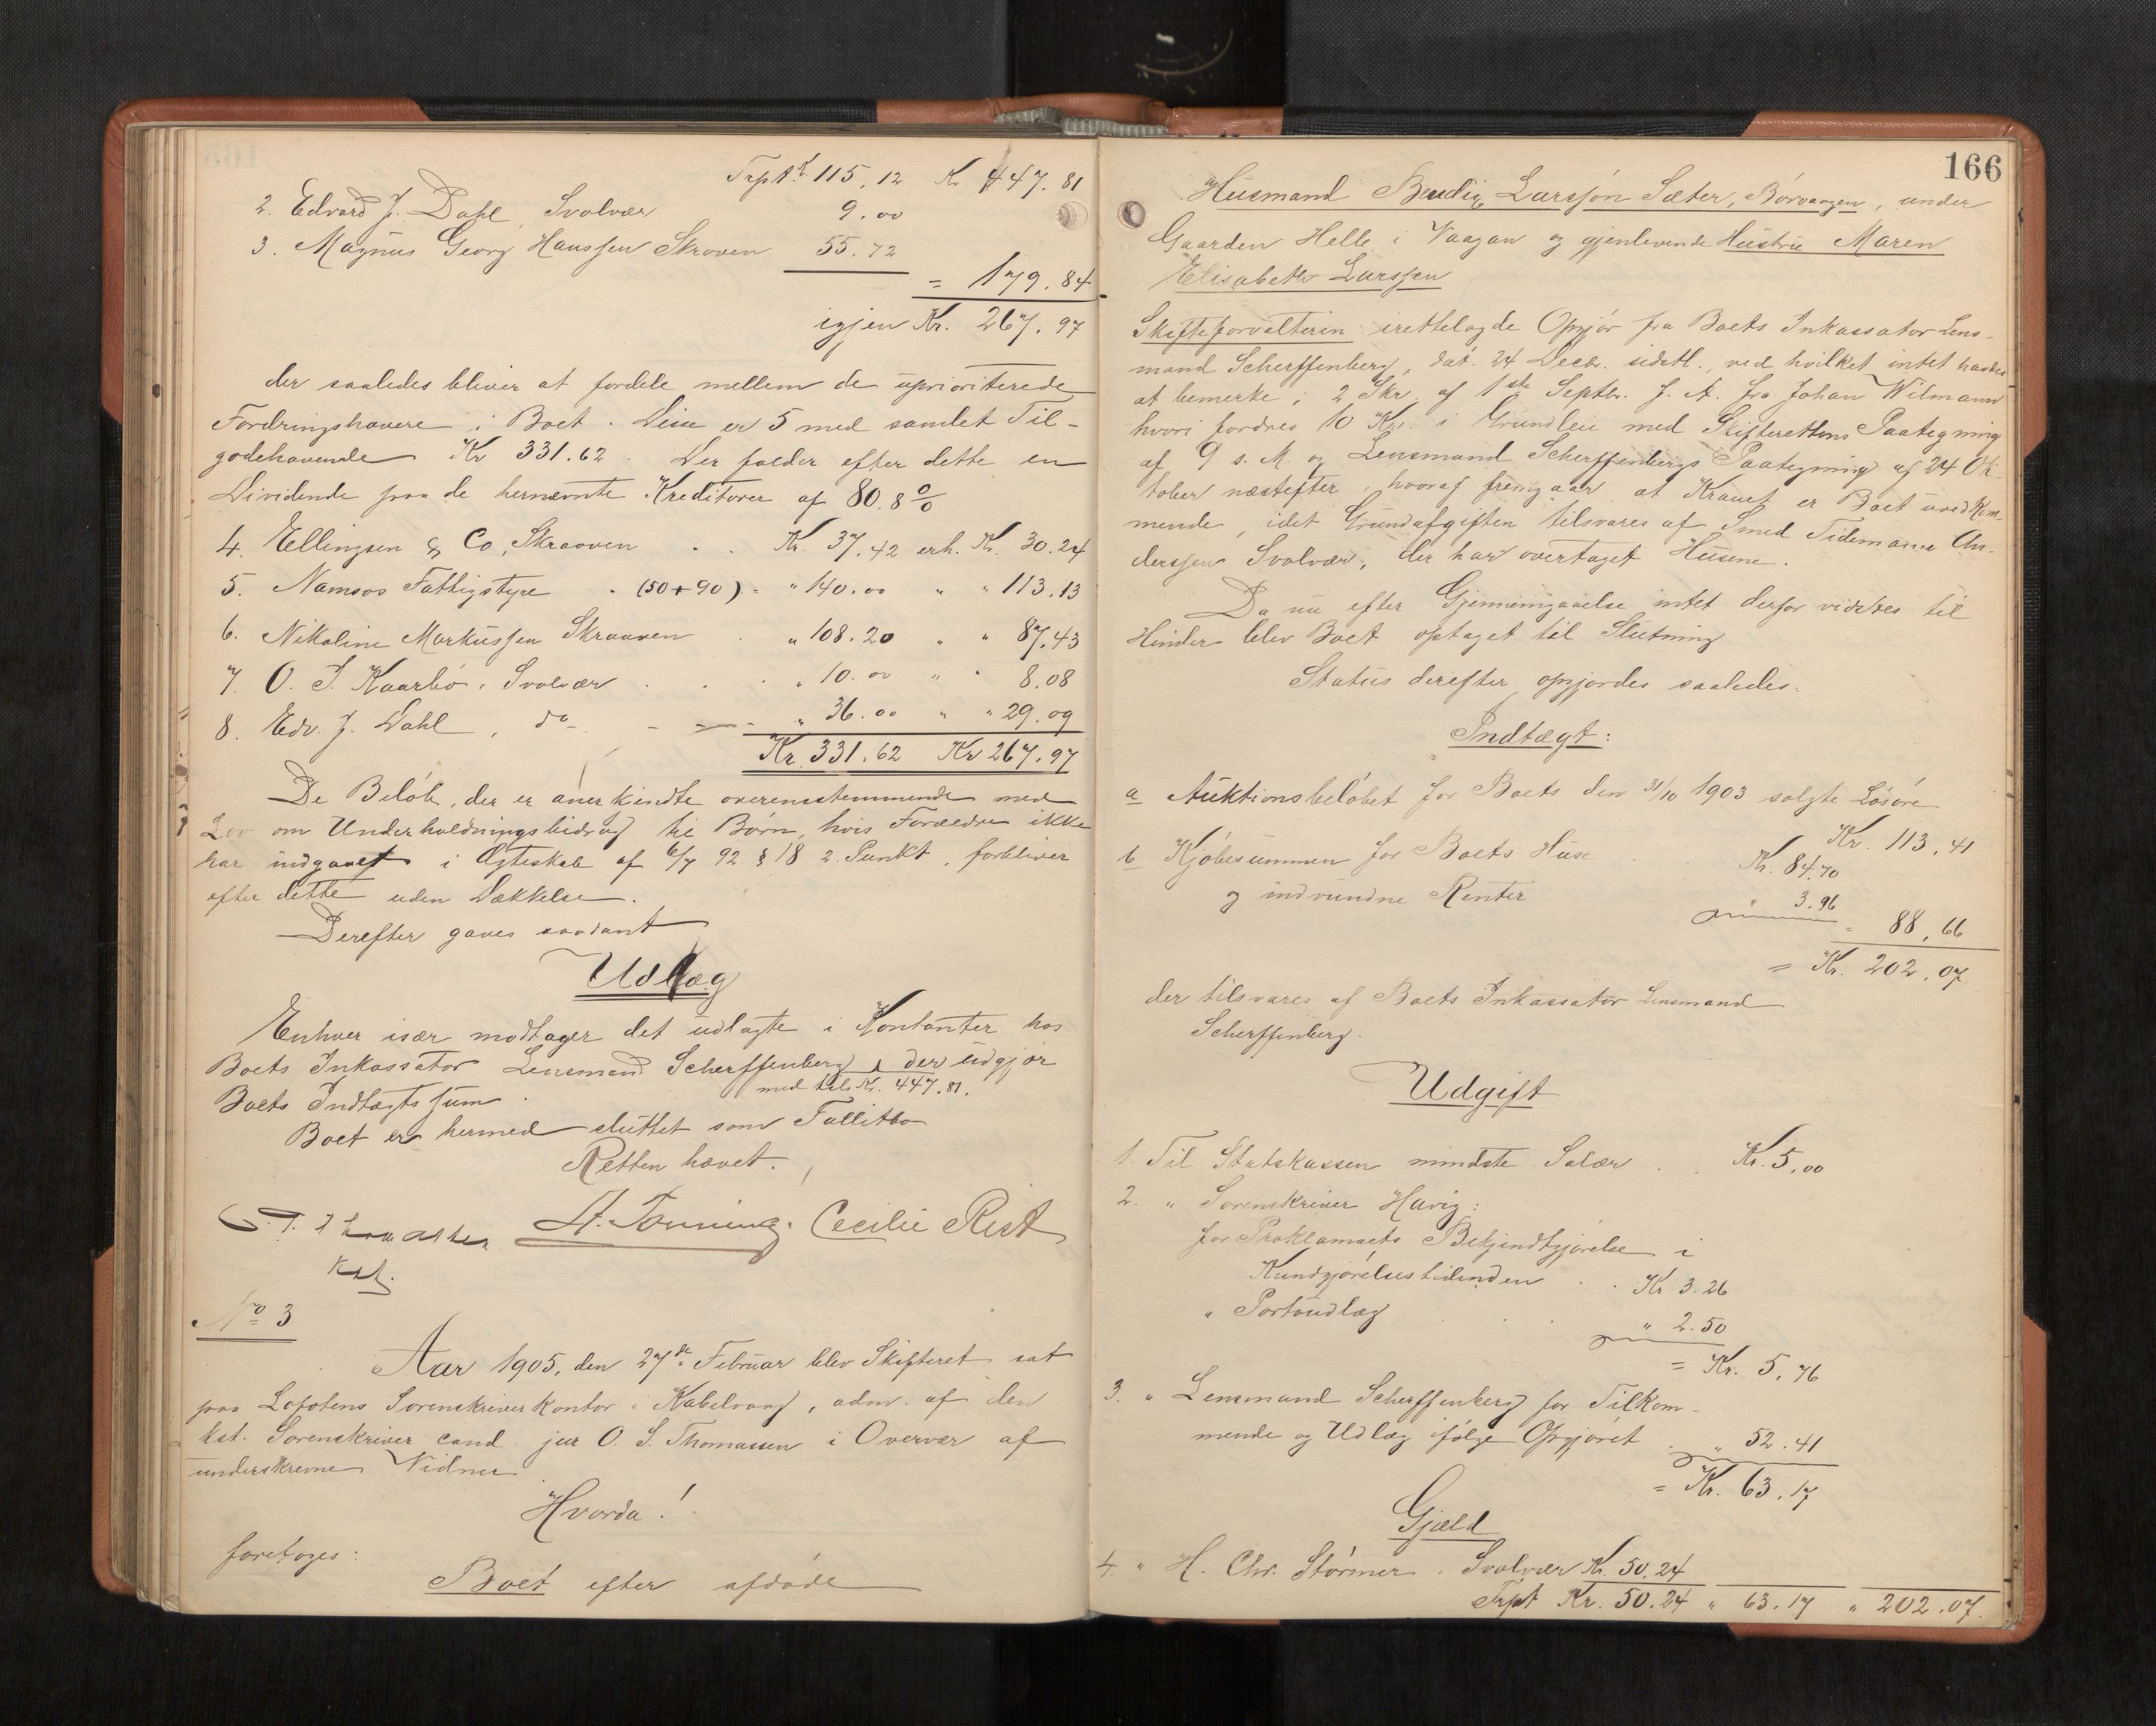 Trpt Kr. 115.12 Kr. 447.81
2. Edvard J. Dahl, Svolvær 9.00
3. Magnus Georg Hanssen Skroven 55.72
= 179.84
igjen Kr. 267.97
der saaledes bliver at fordele mellem de uprioriterede
Fordringshavere i Boet. Disse er 5 med samlet Til-
godehavende Kr 331.62. Der falder efter dette en
Dividende paa de hernævnte Kreditorer af 80.8 %
4. Ellingsen & Co, Skraaven . . Kr. 37.42 erh. Kr. 30.24
5. Namsos Fattigstyre . (50+90) - " 140.00 " " 113.13
6. Nikoline Markussen Skraaven . " 108.20 " " 87.43
7. O. J. Kaarbø, Svolvær . . . " 10.00 " " 8.08
8. Edv. J. Dahl, do - - " 36.00 " " 29.09
Kr. 331.62 Kr 267.97
De Beløb, der er anerkjendte overensstemmende med
Lov om Underholdningsbidrag til Børn, hvis Forældre ikke
har indgaaet i Ægteskab af 6/7 92 § 18 2. Punkt, forbliver
efter dette uden Dækkelse.
Derefter gaves saadant
Udlæg
Enhver især modtager det udlagte i Kontanter hos
Boets Inkassator Lensmand Scherffenberg, der udgjør
med tils. Kr. 447.81.
Boets Indtægtssum.
Boet er hermed sluttet som Fallitbo
Retten hævet.
O. S. Thomassen A. Tønning. Cecilie Rist
kst.
No 3
Aar 1905, den 27de Februar blev Skifteret sat
paa Lofotens Sorenskriverkontor i Kabelvaag, adm. af den
kst. Sorenskriver cand. jur O. S. Thomassen i Overvær af
underskrevne Vidner
Hvorda!
foretoges:
Boet efter afdøde
166
Husmand Bendix Larssøn Sæter, Børvaagen, under
Gaarden Helle i Vaagan og gjenlevende Hustru Maren
Elisabeth Larssen
Skifteforvalteren irettelagde Opgjør fra Boets Inkassator Lens-
mand Scherffenberg, dat. 24 Decbr. sidstl., ved hvilket intet havdes
at bemerke; 2 Skr. af 1ste Septbr. f. A. fra Johan Wilmann
hvori fordres 10 Kr. i Grundleie med Skifterettens Paategning
af 9 s. M. og Lensmand Scherffenbergs Paategning af 24 Ok-
tober næstefter, hvoraf fremgaar at Kravet er Boet uvedkom-
mende, idet Grundafgiften tilsvares af Smed Tidemann An-
derssen Svolvær, der har overtaget Husene.
Da nu efter Gjennemgaaelse intet derfor vidstes til
Hinder blev Boet optaget til Slutning
Status derefter opgjordes saaledes:
Indtægt:
a Auktionsbeløbet for Boets den 31/10 1903 solgte Løsøre
Kr. 113.41
b Kjøbesummen for Boets Huse . Kr. 84.70
og indvundne Renter " 3.96
= 88.66
= Kr. 202.07
der tilsvares af Boets Inkassator Lensmand
Scherffenberg.
Udgift
1. Til Statskassen mindste Salær . . Kr. 5.00
2. " Sorenskriver Havig:
for Proklamaets Bekjendtgjørelse i
Kundgjørelsestidenden . . Kr 3.26
" Portoudlæg . . " 2.50
= Kr. 5.76
3. " Lensmand Scherffenberg for Tilkom-
mende og Udlæg ifølge Opgjøret . " 52.41
= Kr. 63.17
Gjæld
4. " H. Chr. Størmer, Svolvær Kr. 50.24
Trpt Kr. 50.24 " 63.17 " 202.07.